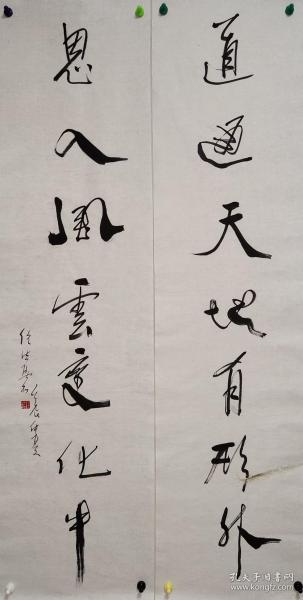 道通天地有形外
思入風雲变化中
孔夫子旧书网